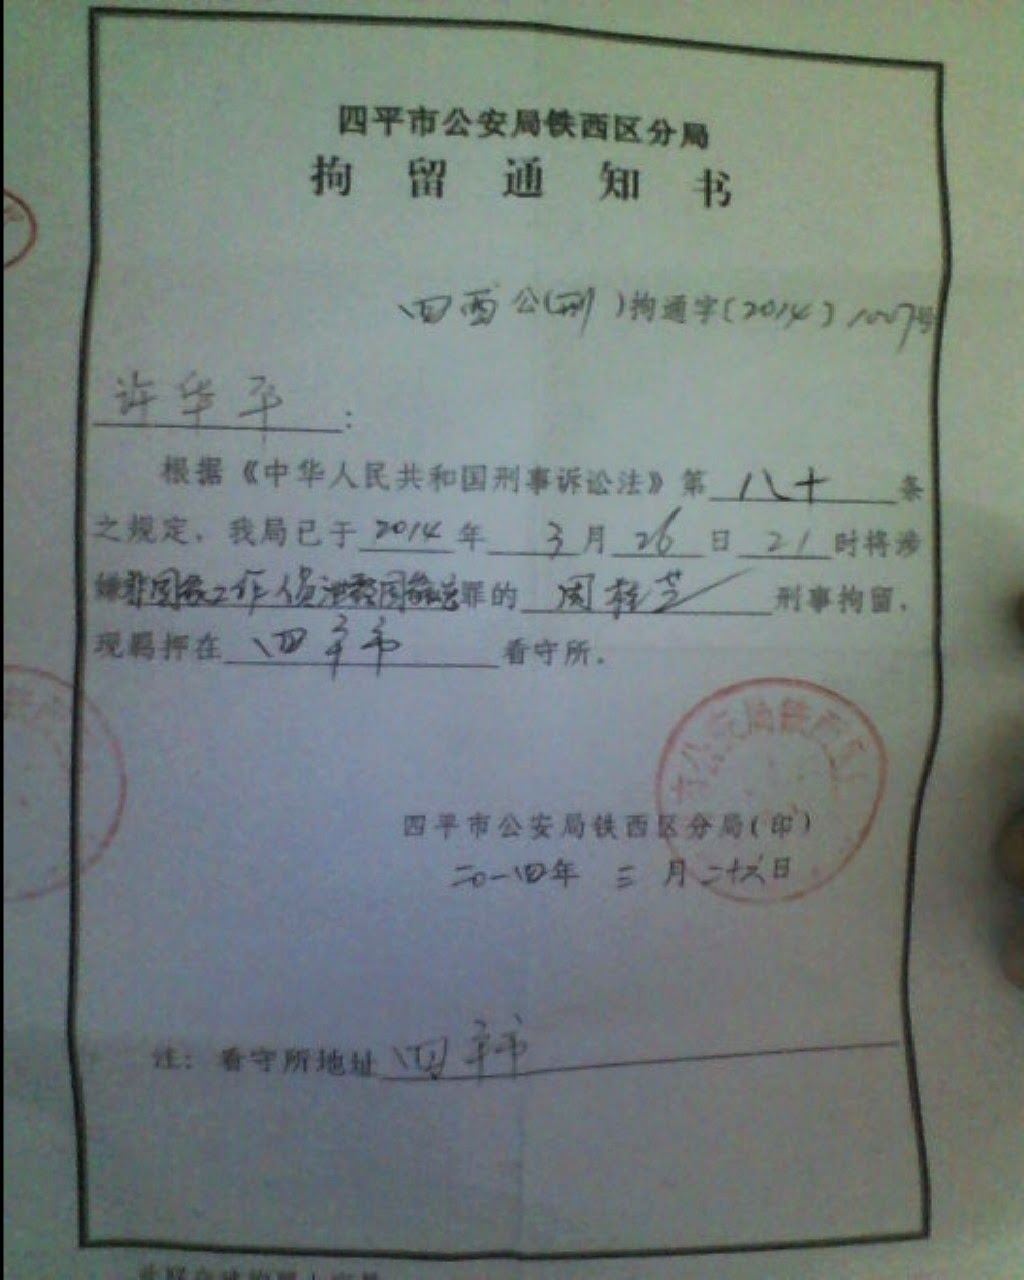 四平市公安局铁西区分局
拘留通知书
四西公(刑)拘通字〔2014〕1007号
许华平:
根据《中华人民共和国刑事诉讼法》第八十条
之规定,我局已于2014年3月26日21时将涉
嫌非国家工作人员泄露国家秘密罪的周桂芝刑事拘留,
现羁押在四平市看守所。
公安局铁西区
四平市公安局铁西区分局(印)
二〇一四年三月二十六日
注:看守所地址四平市